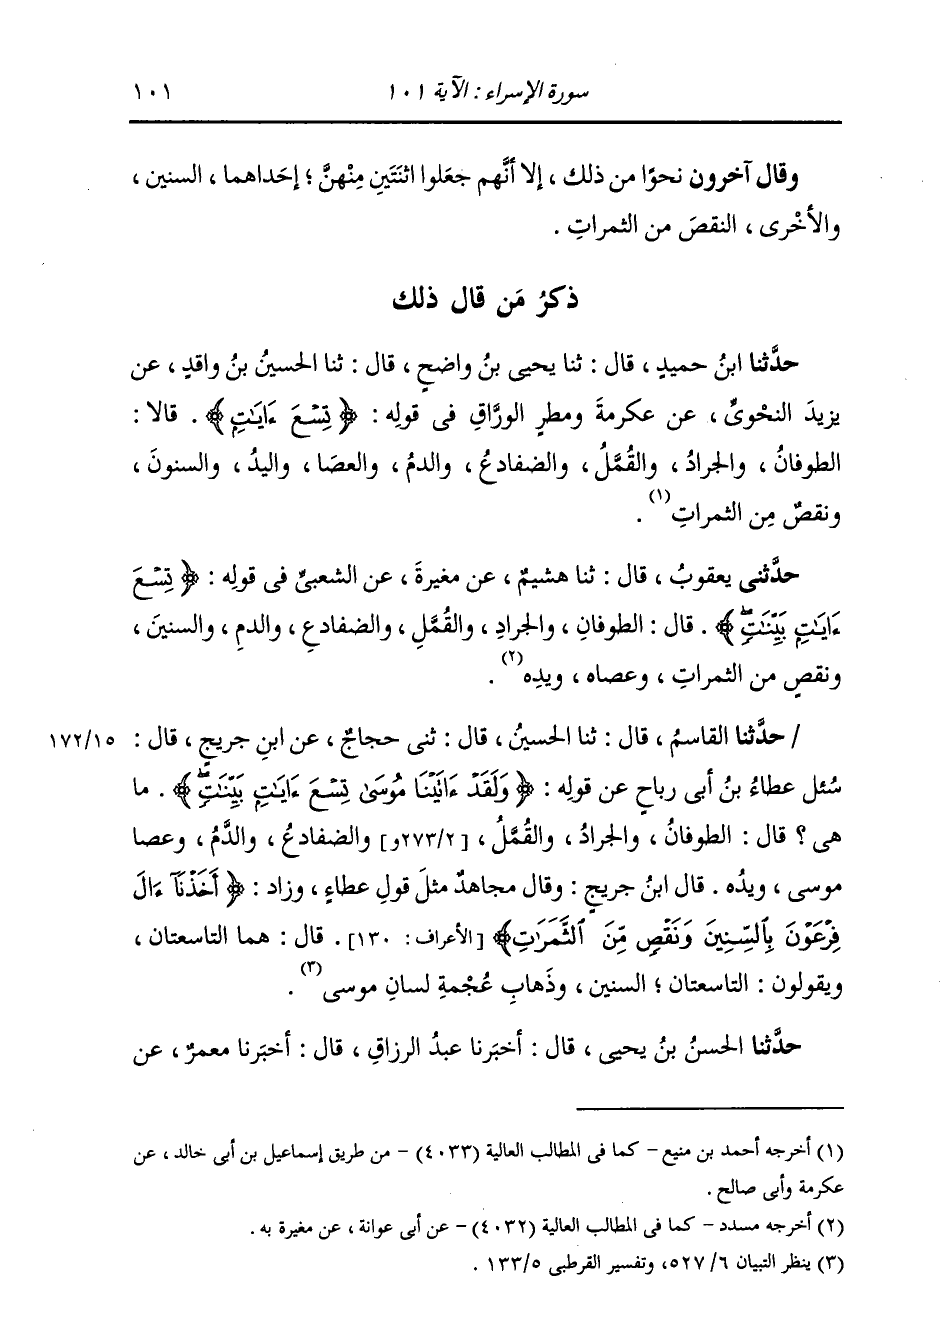 سورة الإسراء : الآية ١٠١
١٠١
وقال آخرون نحوًا من ذلك ، إلا أنَّهم جعَلوا اثنَتَينِ مِنْهنَّ ؛ إحَداهما ، السنين ،
والأخْرى ، النقصَ من الثمراتِ .
ذكرُ مَن قال ذلك
حدَّثنا ابنُ حميدٍ ، قال : ثنا يحيى بنُ واضحٍ ، قال : ثنا الحسينُ بنُ واقدٍ ، عن
يزيدَ النحْوىِّ ، عن عكرمةَ ومطرٍ الورَّاقِ فى قولِه : ﴿ تِسْعَ ءَايَٰتٍ ﴾ . قالا :
الطوفانُ ، والجرادُ ، والقُمَّلُ ، والضفادعُ ، والدمُ ، والعصَا ، واليدُ ، والسنونَ ،
ونقصٌ مِن الثمراتِ (١) .
حدَّثنى يعقوبُ ، قال : ثنا هشيمٌ ، عن مغيرةَ ، عن الشعبىِّ فى قولِه : ﴿ تِسْعَ
ءَايَٰتٍۭ بَيِّنَٰتٍۖ ﴾ . قال : الطوفانِ ، والجرادِ ، والقُمَّلِ ، والضفادعِ ، والدمِ ، والسنينَ ،
ونقصٍ من الثمراتِ ، وعصاه ، ويدِه (٢) .
/ حدَّثنا القاسمُ ، قال : ثنا الحسينُ ، قال : ثنى حجاجٌ ، عن ابنِ جريجٍ ، قال : ١٧٢/١٥
سُئل عطاءُ بنُ أبى رباحٍ عن قولِه : ﴿ وَلَقَدْ ءَاتَيْنَا مُوسَىٰ تِسْعَ ءَايَٰتٍۭ بَيِّنَٰتٍۖ ﴾ . ما
هى ؟ قال : الطوفانُ ، والجرادُ ، والقُمَّلُ ، [٢٧٣/٢و] والضفادعُ ، والدَّمُ ، وعصا
موسى ، ويدُه . قال ابنُ جريجٍ : وقال مجاهدٌ مثلَ قولِ عطاءٍ ، وزاد : ﴿ أَخَذْنَآ ءَالَ
فِرْعَوْنَ بِٱلسِّنِينَ وَنَقْصٍ مِّنَ ٱلثَّمَرَٰتِ ﴾ [الأعراف : ١٣٠] . قال : هما التاسعتان ،
ويقولون : التاسعتان ؛ السنين ، وذَهابِ عُجْمةِ لسانِ موسى (٣) .
حدَّثنا الحسنُ بنُ يحيى ، قال : أخبَرنا عبدُ الرزاقِ ، قال : أخبَرنا معمرٌ ، عن
(١) أخرجه أحمد بن منيع – كما فى المطالب العالية (٤٠٣٣) – من طريق إسماعيل بن أبى خالد ، عن
عكرمة وأبى صالح .
(٢) أخرجه مسدد – كما فى المطالب العالية (٤٠٣٢) – عن أبى عوانة ، عن مغيرة به .
(٣) ينظر التبيان ٥٢٧/٦، وتفسير القرطبى ١٣٣/٥ .